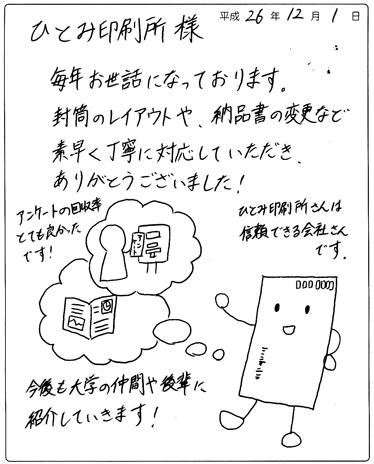 平成 26 年 12 月 1 日
ひとみ印刷所 様
毎年お世話になっております。
封筒のレイアウトや、納品書の変更など
素早く丁寧に対応していただき、
ありがとうございました！
アンケートの回収率
とても良かった
です！
ひとみ印刷所さんは
信頼できる会社さん
です。
今後も大学の仲間や後輩に
紹介していきます！